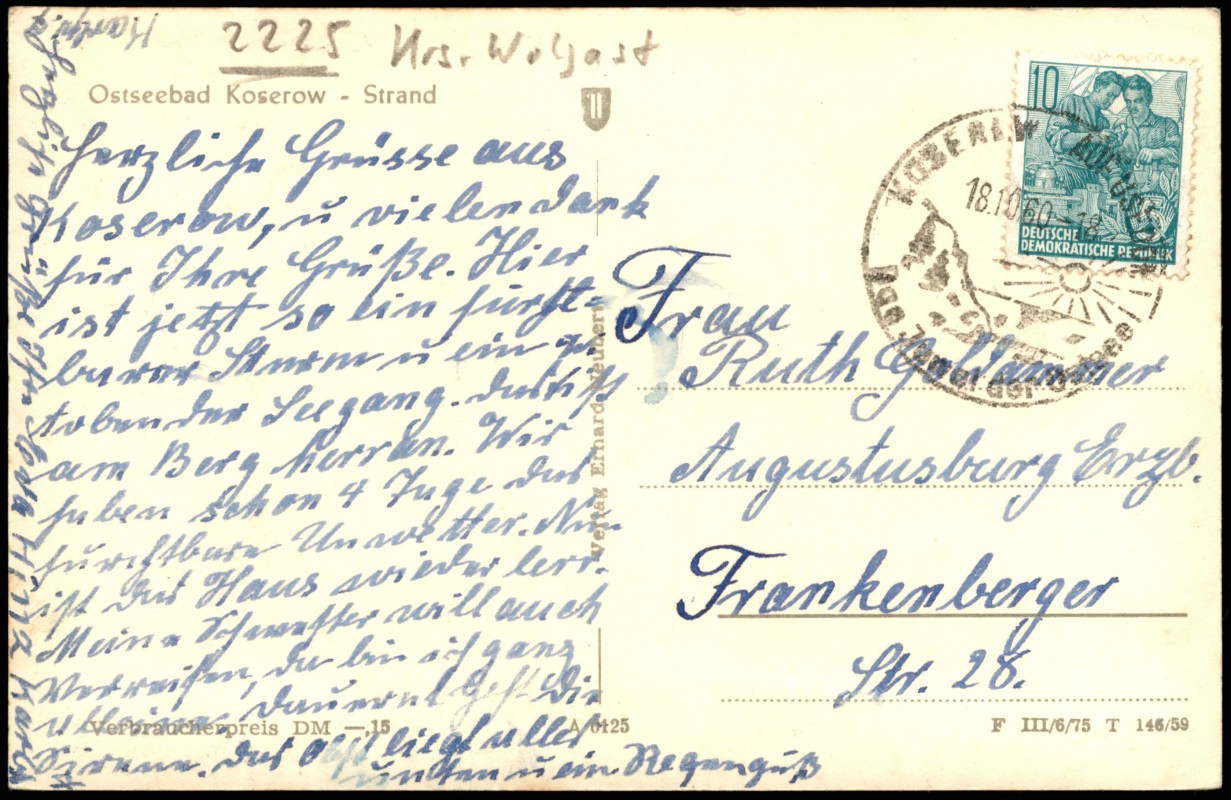 2225 Krs. Wolgast
Ostseebad Koserow - Strand
Herzliche Grüsse aus
Koserow, u vielen Dank
für Ihre Grüße. Hier
ist jetzt so ein furcht-
barer Sturm u ein
tobender Seegang. das ist
am Berg herran. Wir
haben schon 4 Tage das
furchtbare Unwetter. Nun
ist das Haus wieder leer.
Meine Schwester will auch
Verreisen, da bin ich ganz
alleine. dauernt geht die
Sirene. das Obst liegt alles
unten u ein Regenguß
Herzliche Grüße Ihre
Verlag Erhard Neubert
10
DEUTSCHE
DEMOKRATISCHE REPUBLIK
18.10.60
Frau
Ruth Goldammer
Augustusburg Erzb.
Frankenberger
Str. 28.
Verbraucherpreis DM —,15
A 6125
F III/6/75 T 146/59